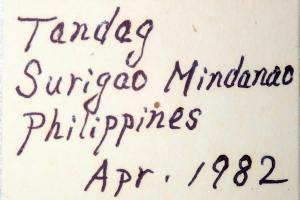 Tandag
Surigao Mindanao
Philippines
Apr. 1982